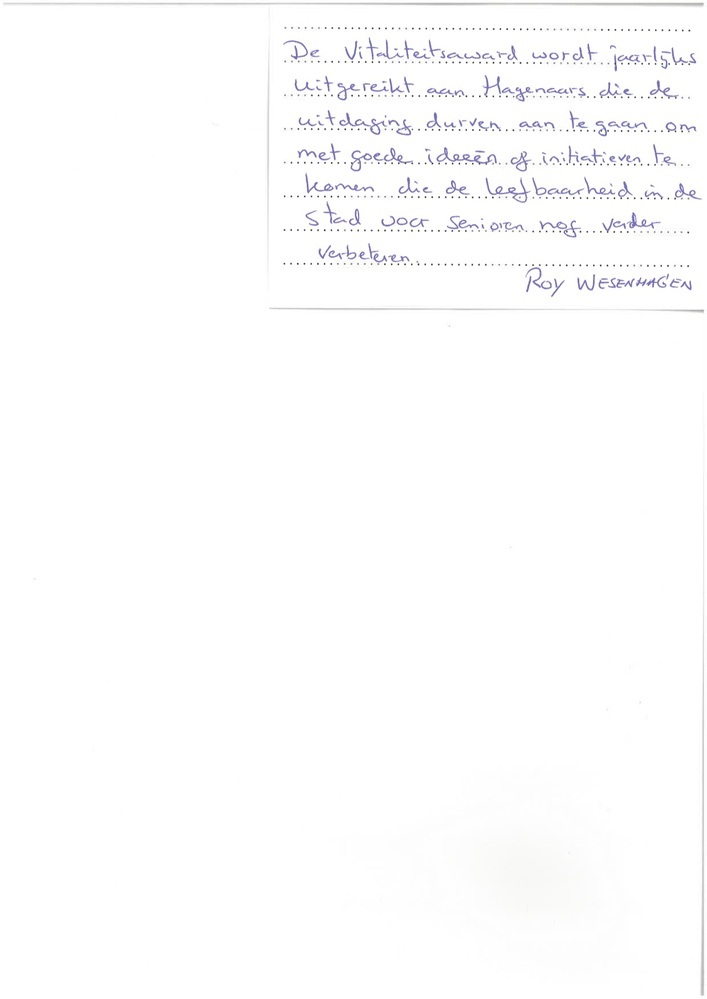 De Vitaliteitsaward wordt jaarlijks
uitgereikt aan Hagenaars die de
uitdaging durven aan te gaan om
met goede ideeën of initiatieven te
komen die de leefbaarheid in de
stad voor senioren nog verder
verbeteren.
Roy WESENHAGEN